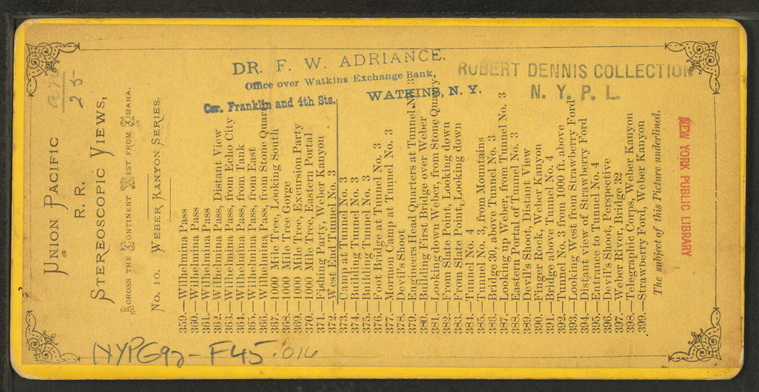 DR. F. W. ADRIANCE,
Office over Watkins Exchange Bank,
Cor. Franklin and 4th Sts.
WATKINS, N. Y.
ROBERT DENNIS COLLECTION
N. Y. P. L.
NEW YORK PUBLIC LIBRARY
UNION PACIFIC
R. R.
STEREOSCOPIC VIEWS,
ACROSS THE CONTINENT WEST FROM OMAHA.
No. 10. WEBER KANYON SERIES.
359.—Wilhelmina Pass
360.—Wilhelmina Pass
361.—Wilhelmina Pass
362.—Wilhelmina Pass, Distant View
363.—Wilhelmina Pass, from Echo City
364.—Wilhelmina Pass, from Tank
365.—Wilhelmina Pass, from East
366.—Wilhelmina Pass, from Stone Quarry
367.—1000 Mile Tree, Looking South
368.—1000 Mile Gorge
369.—1000 Mile Tree, Excursion Party
370.—1000 Mile Tree, Eastern Portal
371.—Fishing Party, Weber Kanyon
372.—West End Tunnel No. 3
373.—Camp at Tunnel No. 3
374.—Building Tunnel No. 3
375.—Building Tunnel No. 3
376.—Foot Bridge at Tunnel No. 3
377.—Mormon Camp at Tunnel No. 3
378.—Devil's Shoot
379.—Engineers Head Quarters at Tunnel No. 3
380.—Building First Bridge over Weber
381.—Looking down Weber, from Stone Quarry
382.—From Slate Point, Looking down
383.—From Slate Point, Looking down
384.—Tunnel No. 4
385.—Tunnel No. 3, from Mountains
386.—Bridge 30, above Tunnel No. 3
387.—Looking up Weber, from Tunnel No. 3
388.—Eastern Portal of Tunnel No. 3
389.—Devil's Shoot, Distant View
390.—Finger Rock, Weber Kanyon
391.—Bridge above Tunnel No. 4
392.—Tunnel No. 3 from 1000 ft. above
393.—Looking West from Strawberry Ford
394.—Distant view of Strawberry Ford
395.—Entrance to Tunnel No. 4
396.—Devil's Shoot, Perspective
397.—Weber River, Bridge 32
398.—Telegraphic Corps, Weber Kanyon
399.—Strawberry Ford, Weber Kanyon
The subject of this Picture underlined.
NYPG92-F45.016